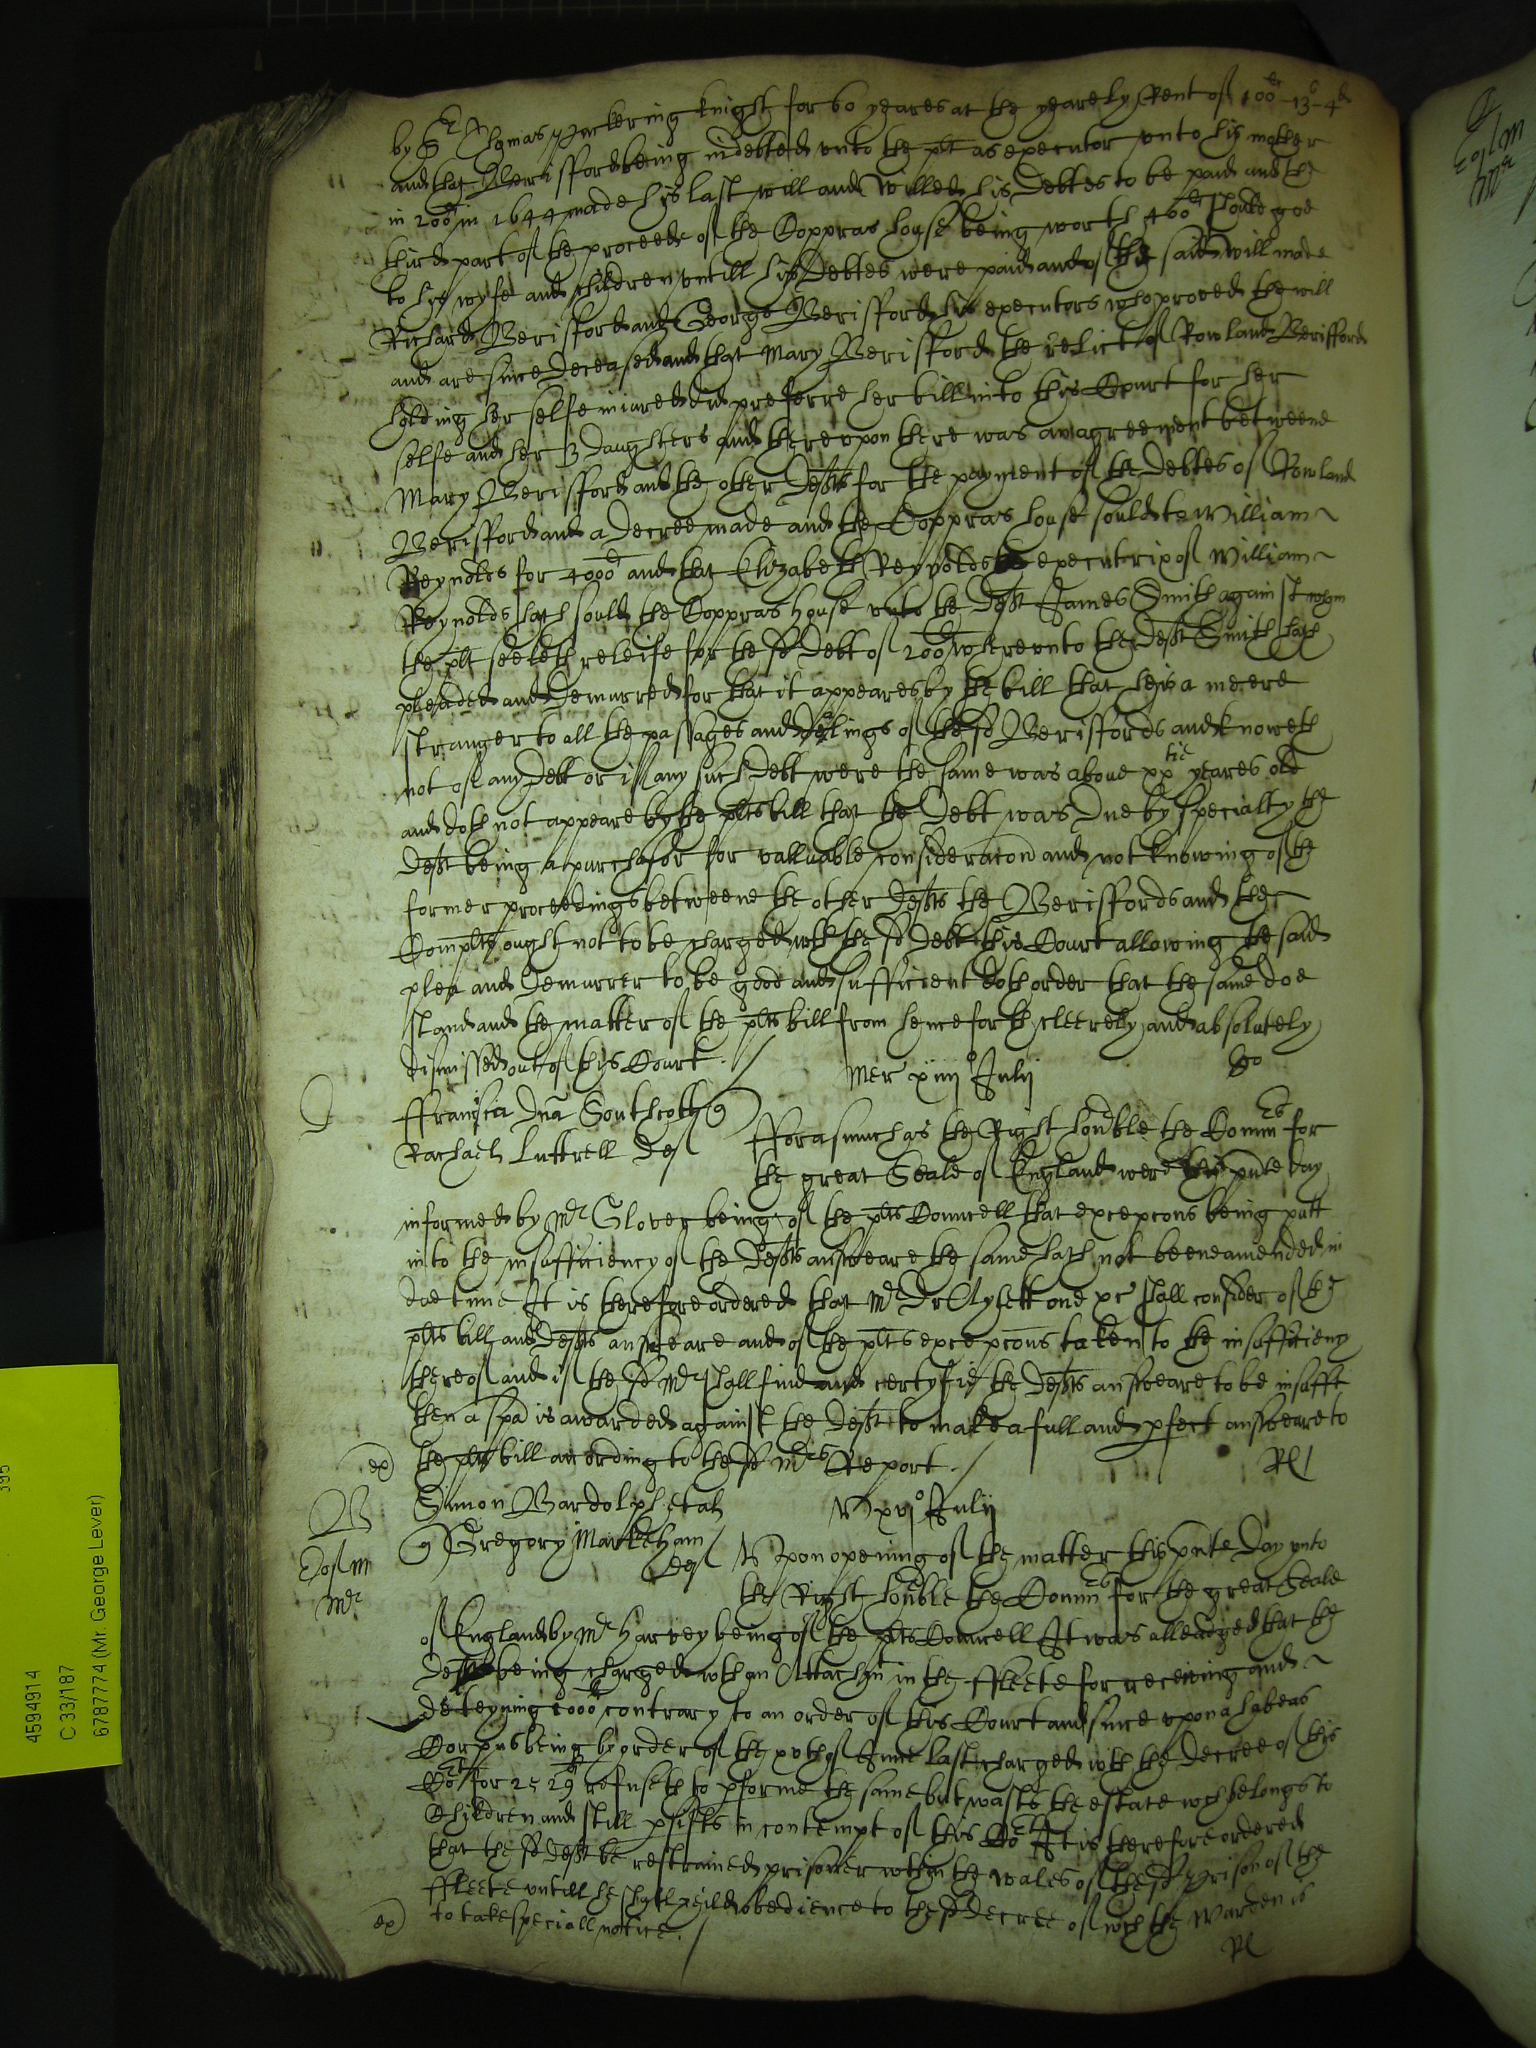 by Sr Thomas Puckering knight for 60 yeares at the yearely Rent of 100li-13s-4d
and that Berisfford being indebted unto the plt as executor unto his mother
in 200li in 1644 made his last will and Willed his Debtes to be paid and the
third part of the proceede of the Coppras house being worth 400li should goe
to his wyfe and children untill his Debtes were paid and of the said will made
Richard Berisford and George Berisfford his executors who proved the will
and are since deceased and that Mary Berisfford the relict of Rowland Berifford
holding her selfe iniured did preferre her bill into this Court for her
selfe and her 3 daughters and thereupon there was an agreement betweene
Mary Berisfford and the other Defts for the payment of the Debtes of Rowland
Berisfford and a decree made and the Coppras house sould to William
Reynolds for 4000li and that Elizabeth Reynoldes executerix of William
Reynolds hath sould the Coppras house unto the Deft James Smith against whom
the plt seeketh releife for the sd Debt of 200li whereunto the Deft Smith hath
pleaded and Demurred for that it appeares by the bill that he is a meere
stranger to all the passages and dealings of the sd Berisffords and knoweth
not of any Debt or if any such Debt were the same was above xxtie yeares old
and doth not appeare by the plts bill that the Debt was Due by specialty the
Deft being a purchasor for valluable consideracon and not knowing of the
former proceedings betweene the other Defts the Berisffords and the
Complts ought not to be charged wth the sd Debt this Court allowing the said
plea and Demurrer to be good and sufficient doth order that the same doe
stand and the matter of the plts bill from henceforth cleerely and absolutely
dismissed out of this Court.
Mer xiiijo Julij
ffrancisca Dna Southcott
Rachaell Luttrell Def
fforasmuch as the Right honble the Comrs for
the great Seale of England were this pnte day
informed by Mr Glover being of the plts Councell that excepcons being putt
in to the insufficiency of the Defts answeare the same hath not beene amended in
due time It is therefore ordered that Mr Dr Aylett one &c shall consider of the
plts bill and Defts answeare and of the plts excepcons taken to the insufficiency
thereof and if the sd Mr shall find and certyfie the Defts answeare to be insufft
then a spa is awarded against the Deft to make a full and pfect answeare to
the plts bill according to the sd Mrs Report.
ex
Rl
B
Simon Bardolph et al
V xvjo Julij
Gregory Markeham
Def
Upon opening of the matter this pnte Day unto
the Right honble the Comrs for the great Seale
of England by Mr Harvey being of the plts Councell It was alleadged that the
Deft being charged wth an Attachmt in the ffleete for receiving and
deteyning 1000li contrary to an order of this Court and since upon a habeas
Corpus being by order of the xvth of June last charged with the decree of this
Cort for 2529li refuseth to pforme the same but wasts the estate wch belongs to
Children and still psists in contempt of this Cort It is therefore ordered
that the sd Deft be restrained prisoner wthin the wales of the sd prison of the
ffleete untill he shall yeild obedience to the sd decree of wch the Warden is
to take speciall notice.
ex
Rl
395
4594914
C 33/187
6787774 (Mr. George Lever)